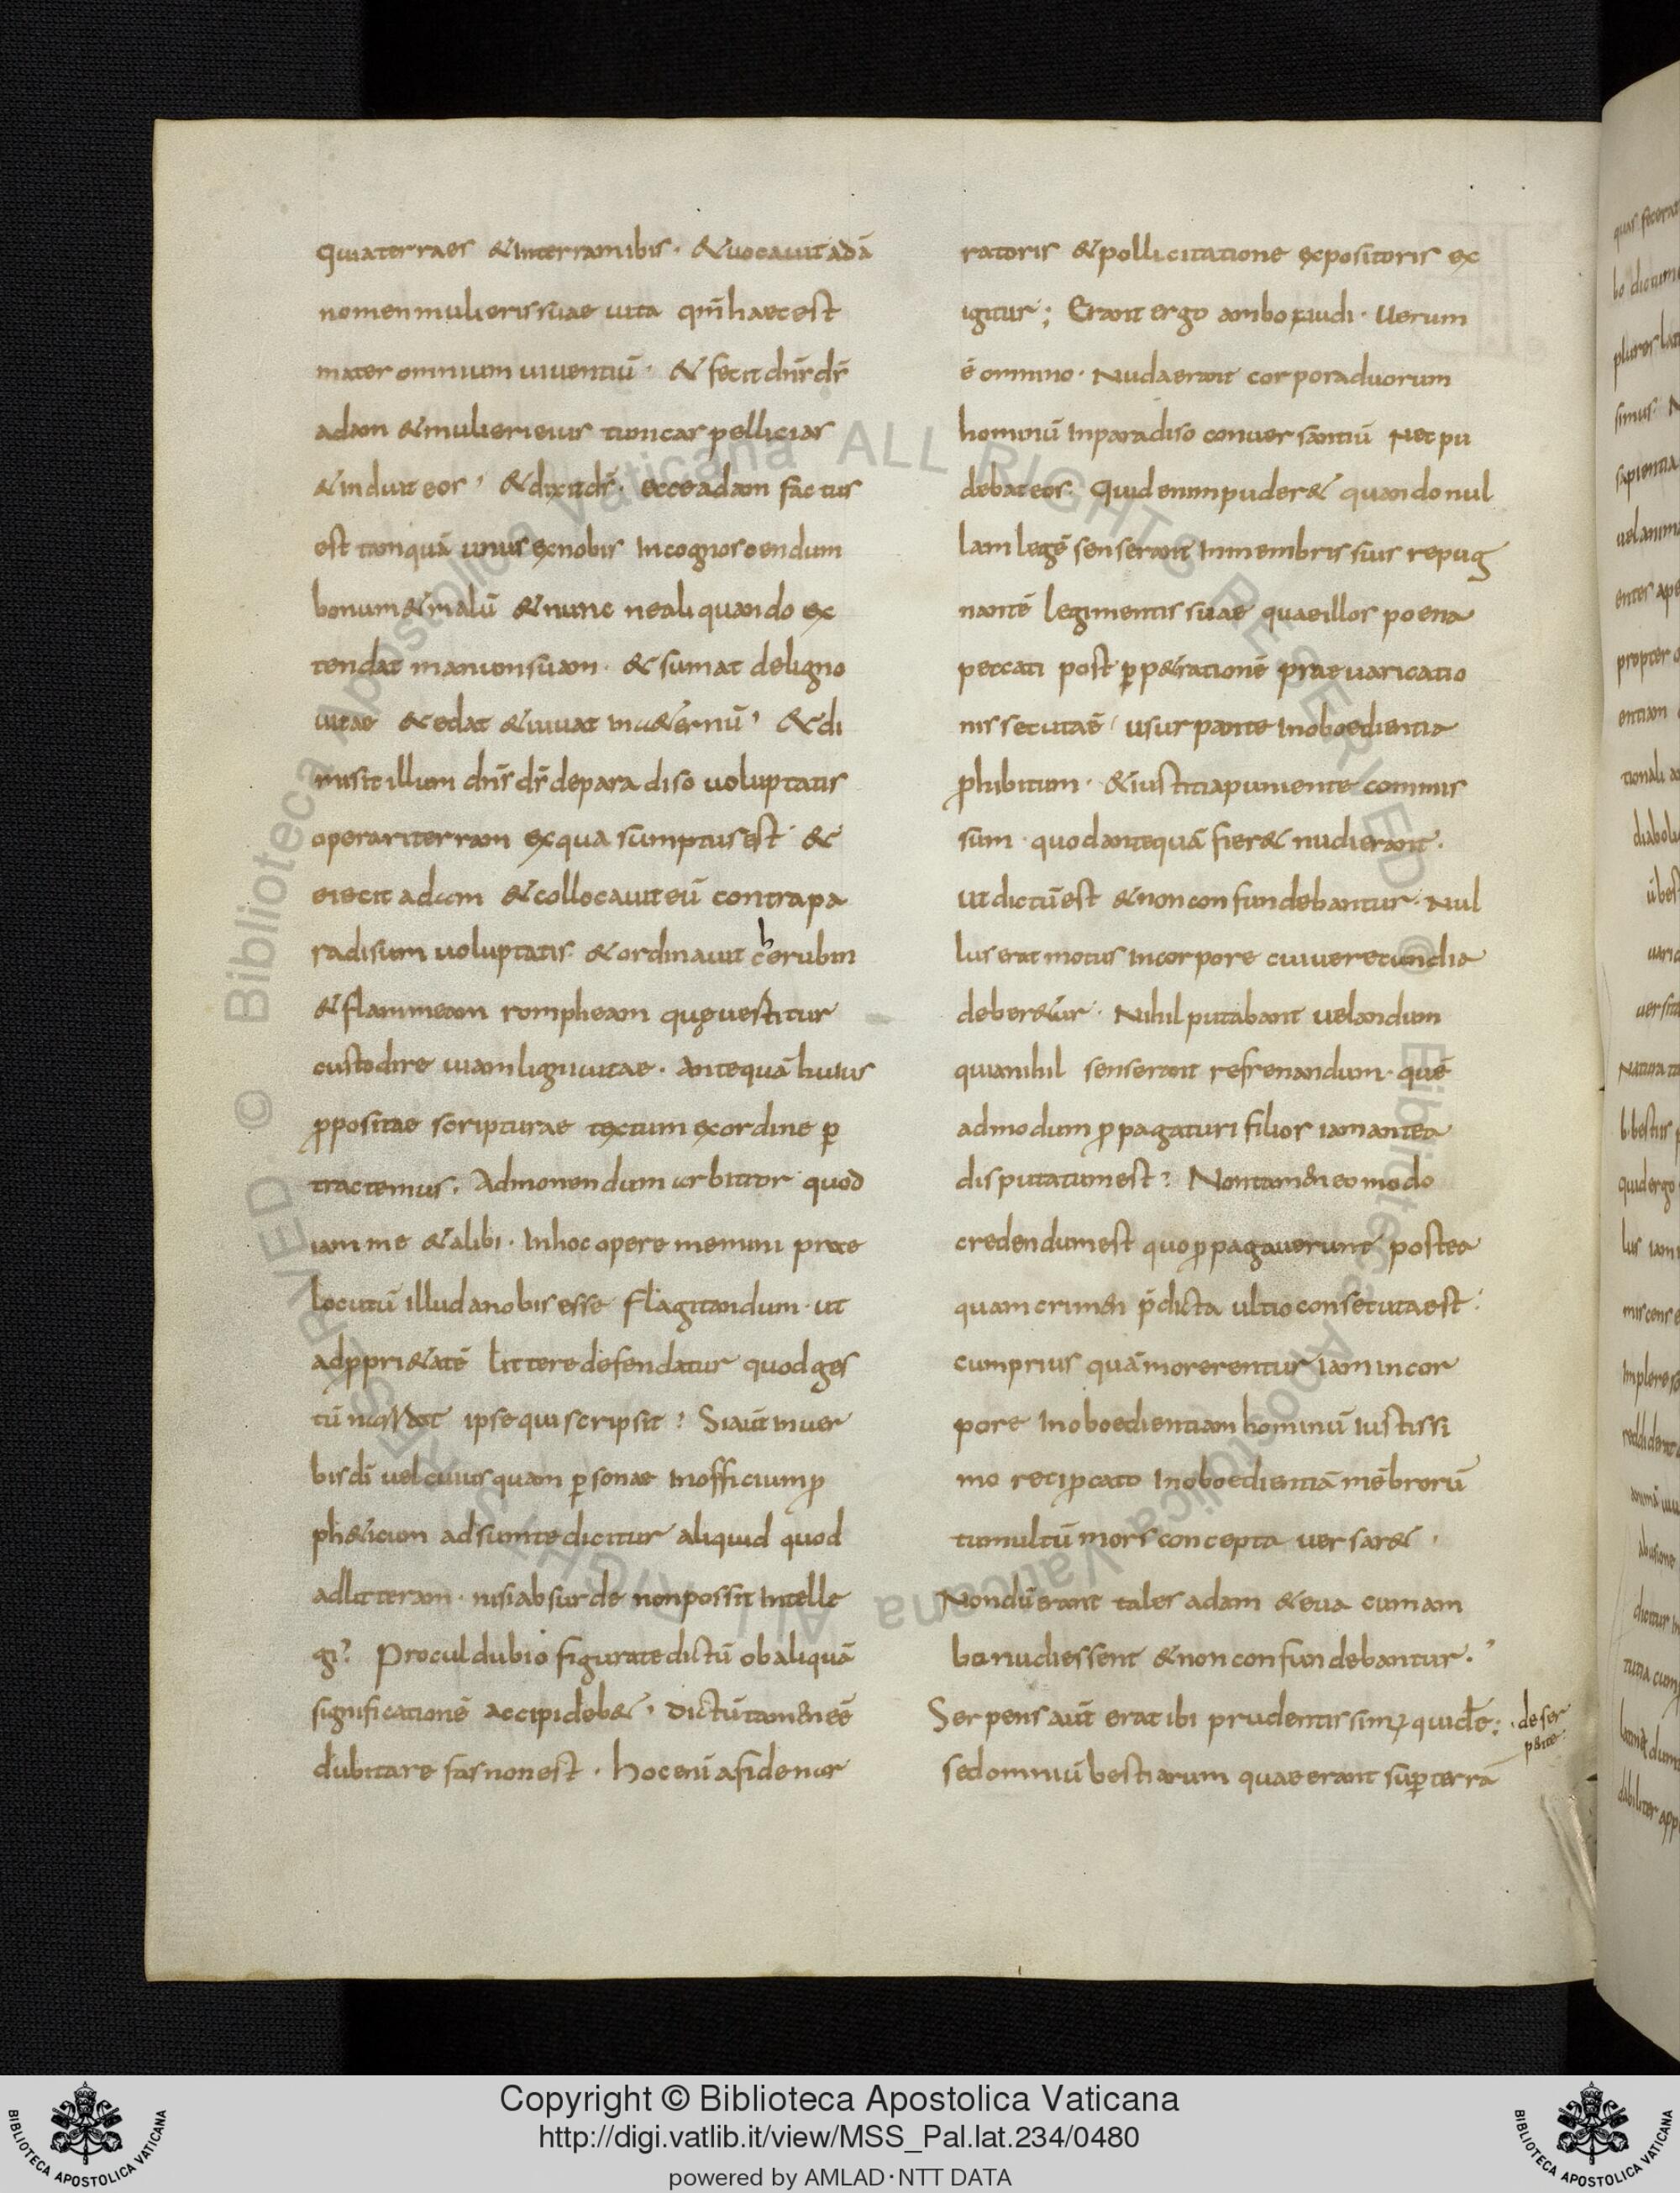 quia terra es & in terram ibis · & uocauit adā
nomen mulieris suae uita qm̄ haec est
mater omnium uiuentiū · & fecit dn̄s ds̄
adam & mulieri eius tunicas pellicias
& induit eos ' & dixit ds̄ · ecce adam factus
est tanquā unus ex nobis In cognoscendum
bonum & malū & nunc ne aliquando ex
tendat manum suam · & sumat de ligno
uitae & edat & uiuat in &ernū ' & di
misit illum dn̄s ds̄ de paradiso uoluptatis
operari terram ex qua sumptus est · &
eiecit adam & collocauit eū contra pa
radisum uoluptatis · & ordinauit cherubin
& flammeam rompheam quę uestitur
custodire uiam ligni uitae · Antequā huius
ꝓpositae scripturae textum ex ordine ꝑ
tractemus · Admonendum arbitror quod
iam me & alibi · In hoc opere memini prae
locutū illud a nobis esse flagitandum · ut
ad ꝓpri&atē littere defendatur quod ges
tū narrat ipse qui scripsit ? Si aūt in uer
bis dī uel cuiusquam ꝑsonae In officium ꝓ
ph&icum adsumte dicitur aliquid quod
ad litteram · nisi absurde non possit Intelle
gi ? Procul dubio figurate dictū ob aliquā
significationē accipi deb& ' Dictū tam̄ eē
dubitare fas non est · hoc eni a fide nar
ratoris & pollicitatione expositoris ex
igitur ; Erant ergo ambo nudi · Uerum
ē omnino · Nuda erant corpora duorum
hominū In paradiso conuersantiū Nec pu
debat eos · Quid enim puder& quando nul
lam legē senserant In membris suis repug
nantē legi mentis suae quae illos poena
peccati post ꝑp&rationē praeuaricatio
nis secuta ē usurpante Inoboedientia
ꝓhibitum · & iustitia puniente commis
sum · quod antequā fier& nudi erant ·
ut dictū est & non confundebantur · Nul
lus erat motus In corpore cui uerecundia
deber&ur · Nihil putabant uelandum
quia nihil senserant refrenandum · quē
admodum ꝓpagaturi filios iam antea
disputatum est ? Non tam̄ eo modo
credendum est quo ꝓpagauerunt postea
quam crimen p̄dicta ultio consecuta est :
cum prius quā morerentur iam in cor
pore Inoboedientiam hominū iustissi
mo reciꝓcato Inoboedientiā mēbrorū
tumultū mors concepta uersar& ·
Nondū erant tales adam & eua cum am
bo nudi essent & non confundebantur · '
Serpens aūt erat ibi prudentissim; quidē : · de ser
p&nte
sed omniū bestiarum quae erant suꝑ terrā
© Biblioteca Apostolica Vaticana ALL RIGHTS RESERVED © Biblioteca Apostolica Vaticana ALL RIGHTS RESERVED
BIBLIOTECA APOSTOLICA VATICANA
Copyright © Biblioteca Apostolica Vaticana
http://digi.vatlib.it/view/MSS_Pal.lat.234/0480
powered by AMLAD·NTT DATA
BIBLIOTECA APOSTOLICA VATICANA